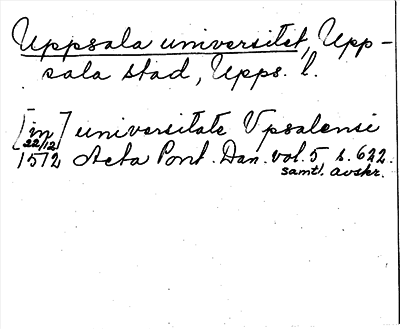 Uppsala universitet, Upp-
sala stad, Upps. l.
[in] universitate Vpsalensi
22/12
1512 Acta Pont. Dan. vol. 5, s. 622.
samt. avskr.